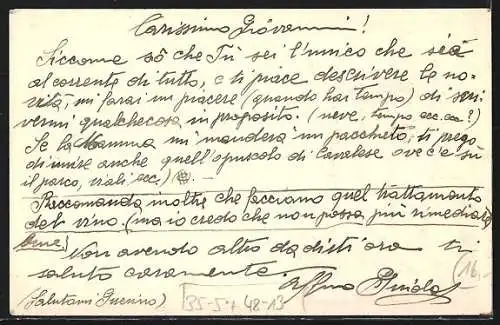 Carissimo Giovanni!
Siccome sò che Tu sei l'unico che sia
al corrente di tutto, e ti piace descrivere le no-
vità, mi farai un piacere (quando hai tempo) di scri
vermi qualchecosa in proposito. (neve, tempo ecc. ecc?)
Se la Mamma mi manderà un pacchetto, ti prego
di unire anche quell'opuscolo di Cavalese ove c'è sù
il parco, viali, ecc.) —
Raccomanda inoltre che facciano quel trattamento
del vino. (ma io credo che non possa più rimediare
bene)
Non avendo altro da dirti ora ti
saluto caramente.
aff.mo Guido
(Salutami Guerino)
35-5+ 48-13
(16.-